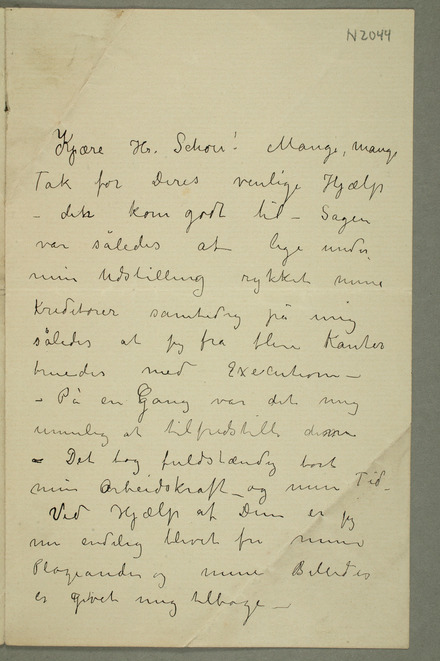 N2044
Kjære Hr. Schou! Mange, mange
Tak for Deres venlige Hjælp
– det kom godt til – Sagen
var således at lige under
min Udstilling rykket mine
Kreditorer samtidig på mig
således at jeg fra flere Kanter
truedes med Execution –
– På en Gang var det mig
umulig at tilfredstille
– Det tog fuldstændig bort
min Arbeidskraft – og min Tid –
Ved Hjælp af Dem er jeg
nu endelig blivet fri mine
Plageånder og mine Billeder
er givet mig tilbage –